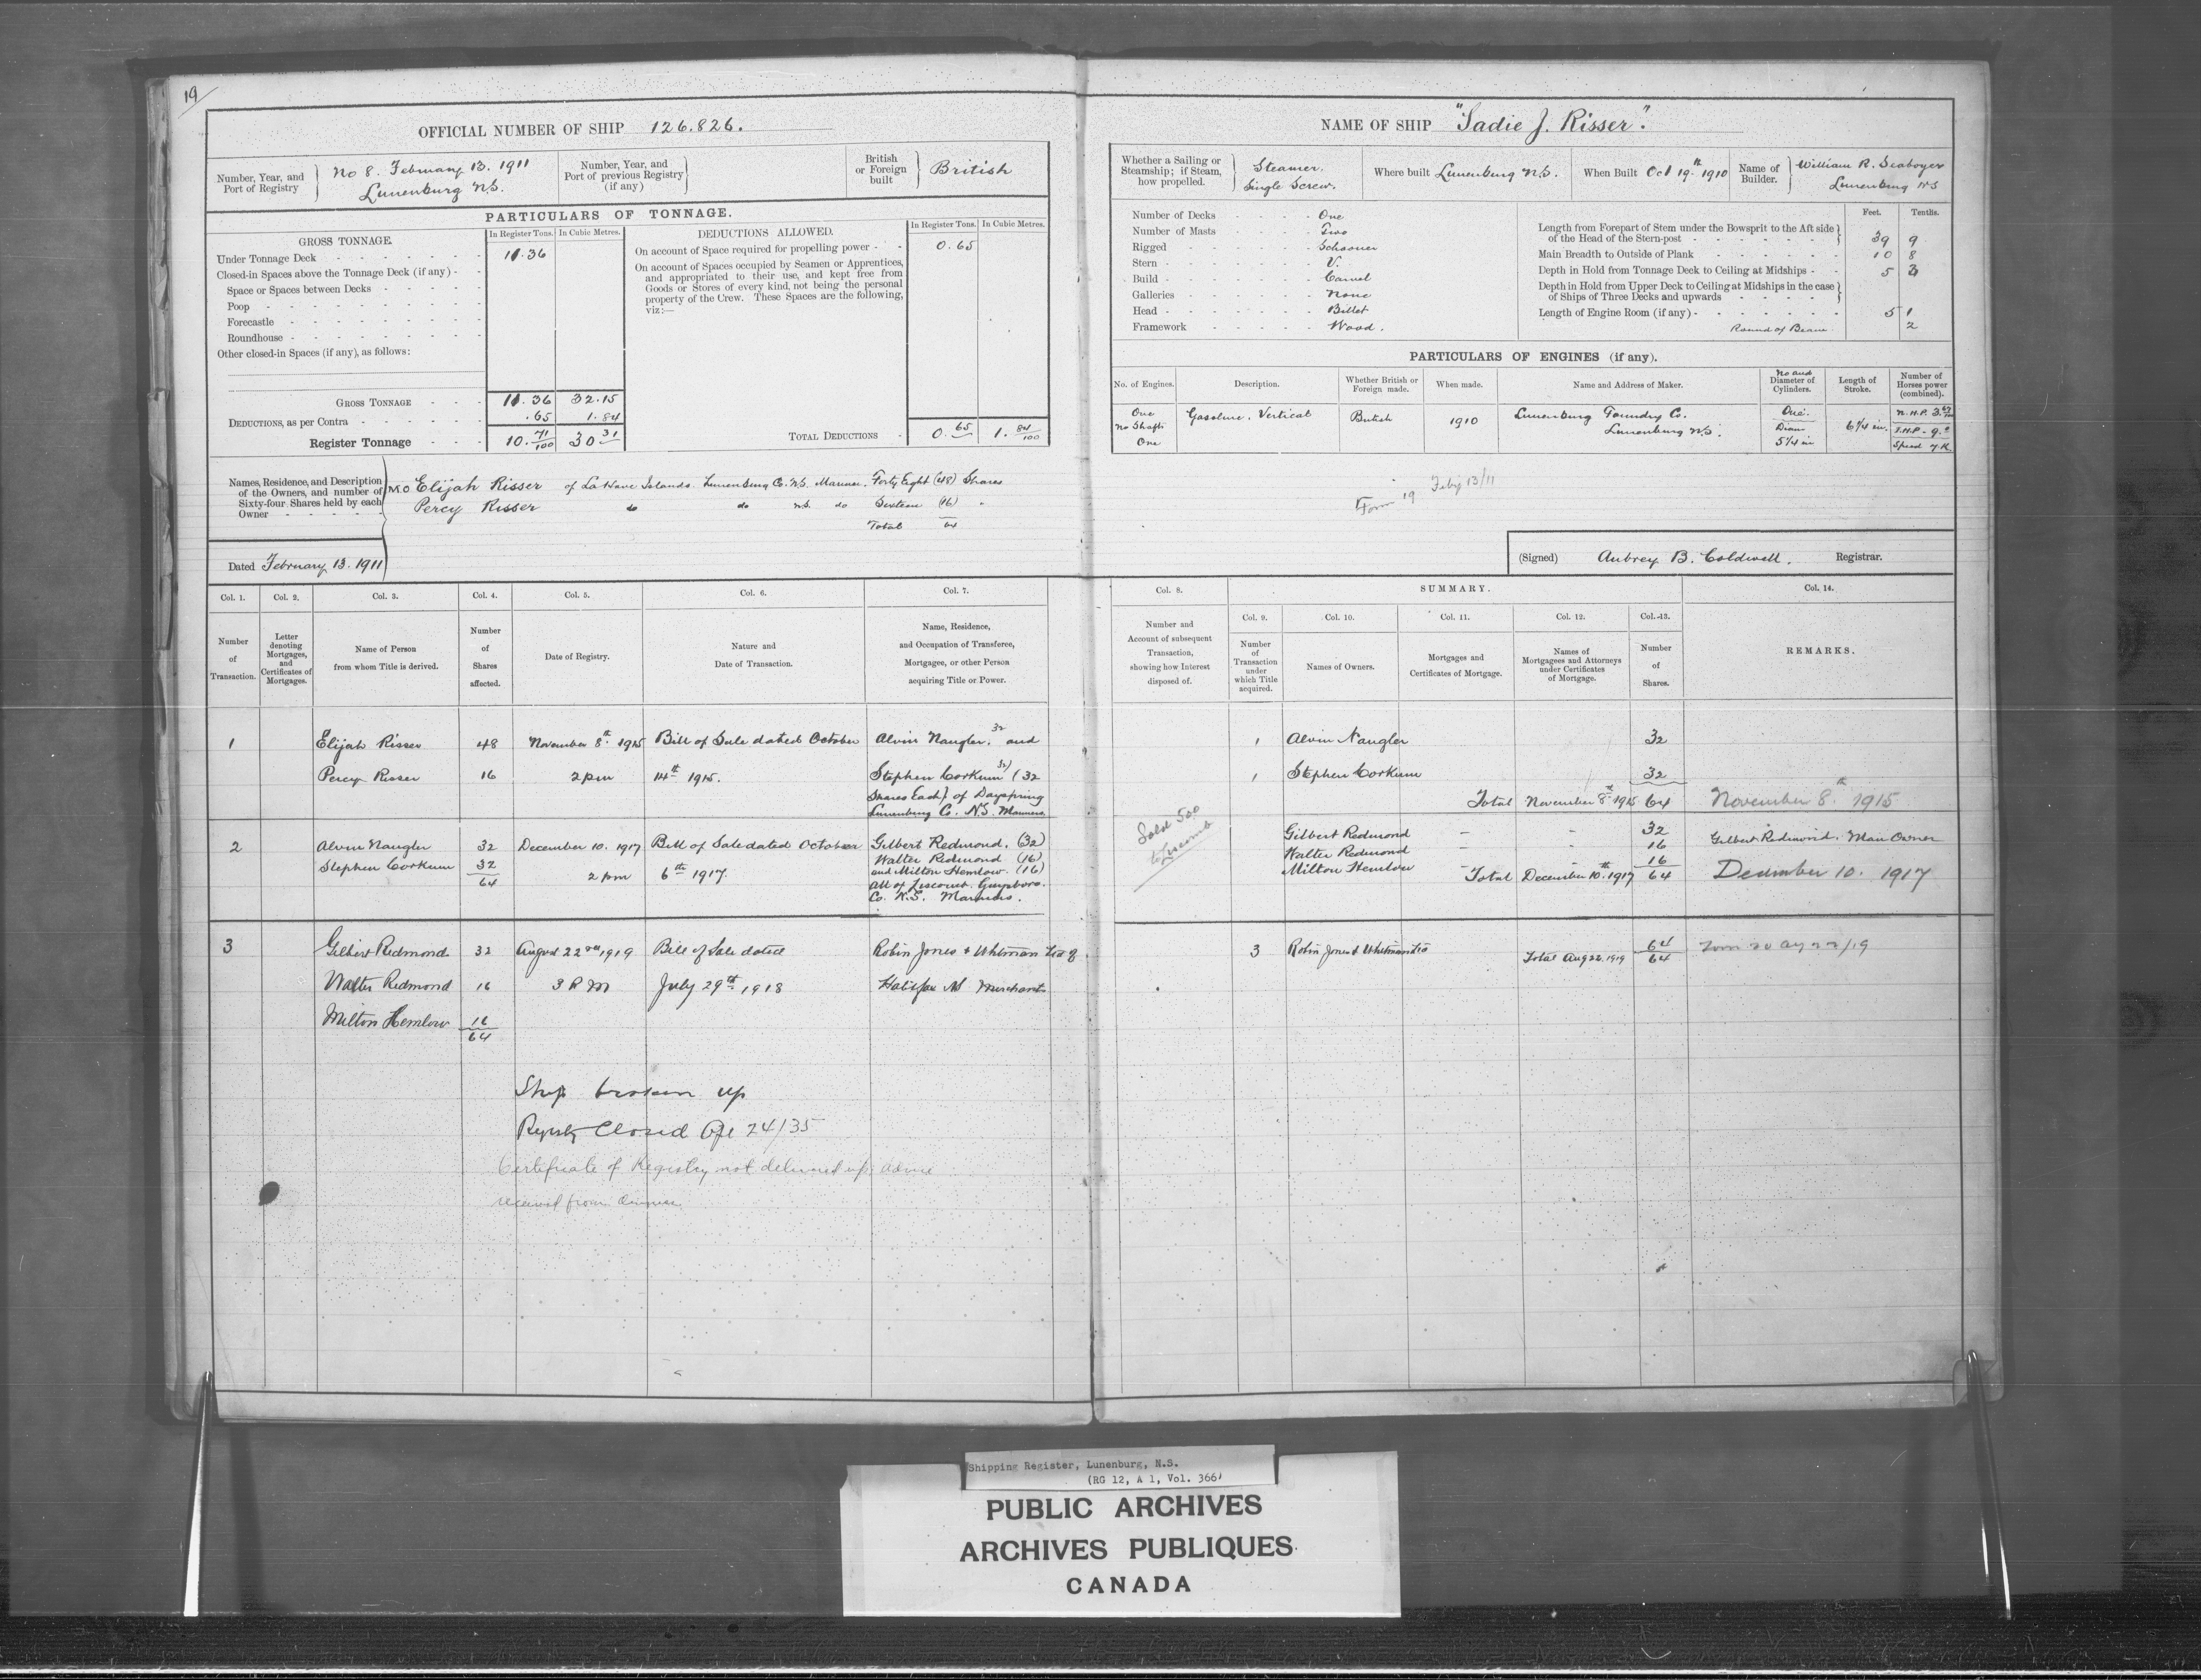 19
OFFICIAL NUMBER OF SHIP 126.826.
Number, Year, and Port of Registry
No 8. February 13. 1911
Lunenburg N.S.
Number, Year, and Port of previous Registry (if any)
British or Foreign built
British
PARTICULARS OF TONNAGE.
GROSS TONNAGE.
In Register Tons.
In Cubic Metres.
DEDUCTIONS ALLOWED.
In Register Tons.
In Cubic Metres.
Under Tonnage Deck 11.36
Closed-in Spaces above the Tonnage Deck (if any)
Space or Spaces between Decks
Poop
Forecastle
Roundhouse
Other closed-in Spaces (if any), as follows:
On account of Space required for propelling power 0.65
On account of Spaces occupied by Seamen or Apprentices,
and appropriated to their use, and kept free from
Goods or Stores of every kind, not being the personal
property of the Crew. These Spaces are the following,
viz:—
GROSS TONNAGE 11.36 32.15
DEDUCTIONS, as per Contra .65 1.84
Register Tonnage 10.71/100 30 31
TOTAL DEDUCTIONS 0.65 1.84/100
Names, Residence, and Description
of the Owners, and number of
Sixty-four Shares held by each
Owner
M.O Elijah Risser of LaHave Islands. Lunenburg Co. N.S. Mariner. Forty Eight (48) Shares
Percy Risser do do N.S. do Sixteen (16) "
Total 64
Dated February 13. 1911
NAME OF SHIP "Sadie J. Risser".
Whether a Sailing or Steamship; if Steam, how propelled.
Steamer.
Single Screw.
Where built Lunenburg N.S.
When Built Oct 19th 1910
Name of Builder.
William R. Seaboyer
Lunenburg NS
Number of Decks One
Number of Masts Two
Rigged Schooner
Stern V.
Build Carvel
Galleries None
Head Billet
Framework Wood.
Feet. Tenths.
Length from Forepart of Stem under the Bowsprit to the Aft side
of the Head of the Stern-post 39 9
Main Breadth to Outside of Plank 10 8
Depth in Hold from Tonnage Deck to Ceiling at Midships 5
Depth in Hold from Upper Deck to Ceiling at Midships in the case
of Ships of Three Decks and upwards
Length of Engine Room (if any) 5 1
Round of Beam 2
PARTICULARS OF ENGINES (if any).
No. of Engines.
Description.
Whether British or Foreign made.
When made.
Name and Address of Maker.
No and Diameter of Cylinders.
Length of Stroke.
Number of Horses power (combined).
One
No Shafts
One
Gasoline. Vertical
British
1910
Lunenburg Foundry Co.
Lunenburg N.S.
One.
Diam
5 1/4 in
6 1/4 in.
N.H.P. 3.
I.H.P. 9.
Speed 7 K.
Form 19 Feby 13/11
(Signed) Aubrey B. Coldwell. Registrar.
Col. 1. Col. 2. Col. 3. Col. 4. Col. 5. Col. 6. Col. 7.
Number of Transaction.
Letter denoting Mortgages, and Certificates of Mortgages.
Name of Person from whom Title is derived.
Number of Shares affected.
Date of Registry.
Nature and Date of Transaction.
Name, Residence, and Occupation of Transferee, Mortgagee, or other Person acquiring Title or Power.
Col. 8.
SUMMARY.
Col. 14.
Col. 9. Col. 10. Col. 11. Col. 12. Col. 13.
Number and Account of subsequent Transaction, showing how Interest disposed of.
Number of Transaction under which Title acquired.
Names of Owners.
Mortgages and Certificates of Mortgage.
Names of Mortgagees and Attorneys under Certificates of Mortgage.
Number of Shares.
REMARKS.
1 Elijah Risser 48 November 8th 1915 Bill of Sale dated October Alvin Naugler. 32 and
Percy Risser 16 2 pm 14th 1915. Stephen Corkum 32 (32
Shares Each) of Dayspring
Lunenburg Co. N.S. Mariners
1 Alvin Naugler 32
1 Stephen Corkum 32
Total November 8th 1915 64 November 8th 1915
2 Alvin Naugler 32 December 10. 1917 Bill of Sale dated October Gilbert Redmond. (32)
Stephen Corkum 32 2 pm 6th 1917. Walter Redmond (16)
64 and Milton Hemlow. (16)
all of Liscomb. Guysboro.
Co. N.S. Mariners.
Sold 500
to Liscomb
Gilbert Redmond – – 32 Gilbert Redmond. Man Owner
Walter Redmond – 16
Milton Hemlow – 16
Total December 10th 1917 64 December 10. 1917
3 Gilbert Redmond 32 August 22nd 1919 Bill of Sale dated Robin Jones & Whitman Ltd of
Walter Redmond 16 3 P M July 29th 1918 Halifax NS Merchants
Milton Hemlow 16
64
3 Robin Jones & Whitman Ltd 64
Total Aug 22. 1919 64
Form 20 Aug 22/19
Ship broken up
Registry Closed Apl 24/35
Certificate of Registry not delivered up; advice
received from Owners
Shipping Register, Lunenburg, N.S.
(RG 12, A 1, Vol. 366)
PUBLIC ARCHIVES
ARCHIVES PUBLIQUES
CANADA